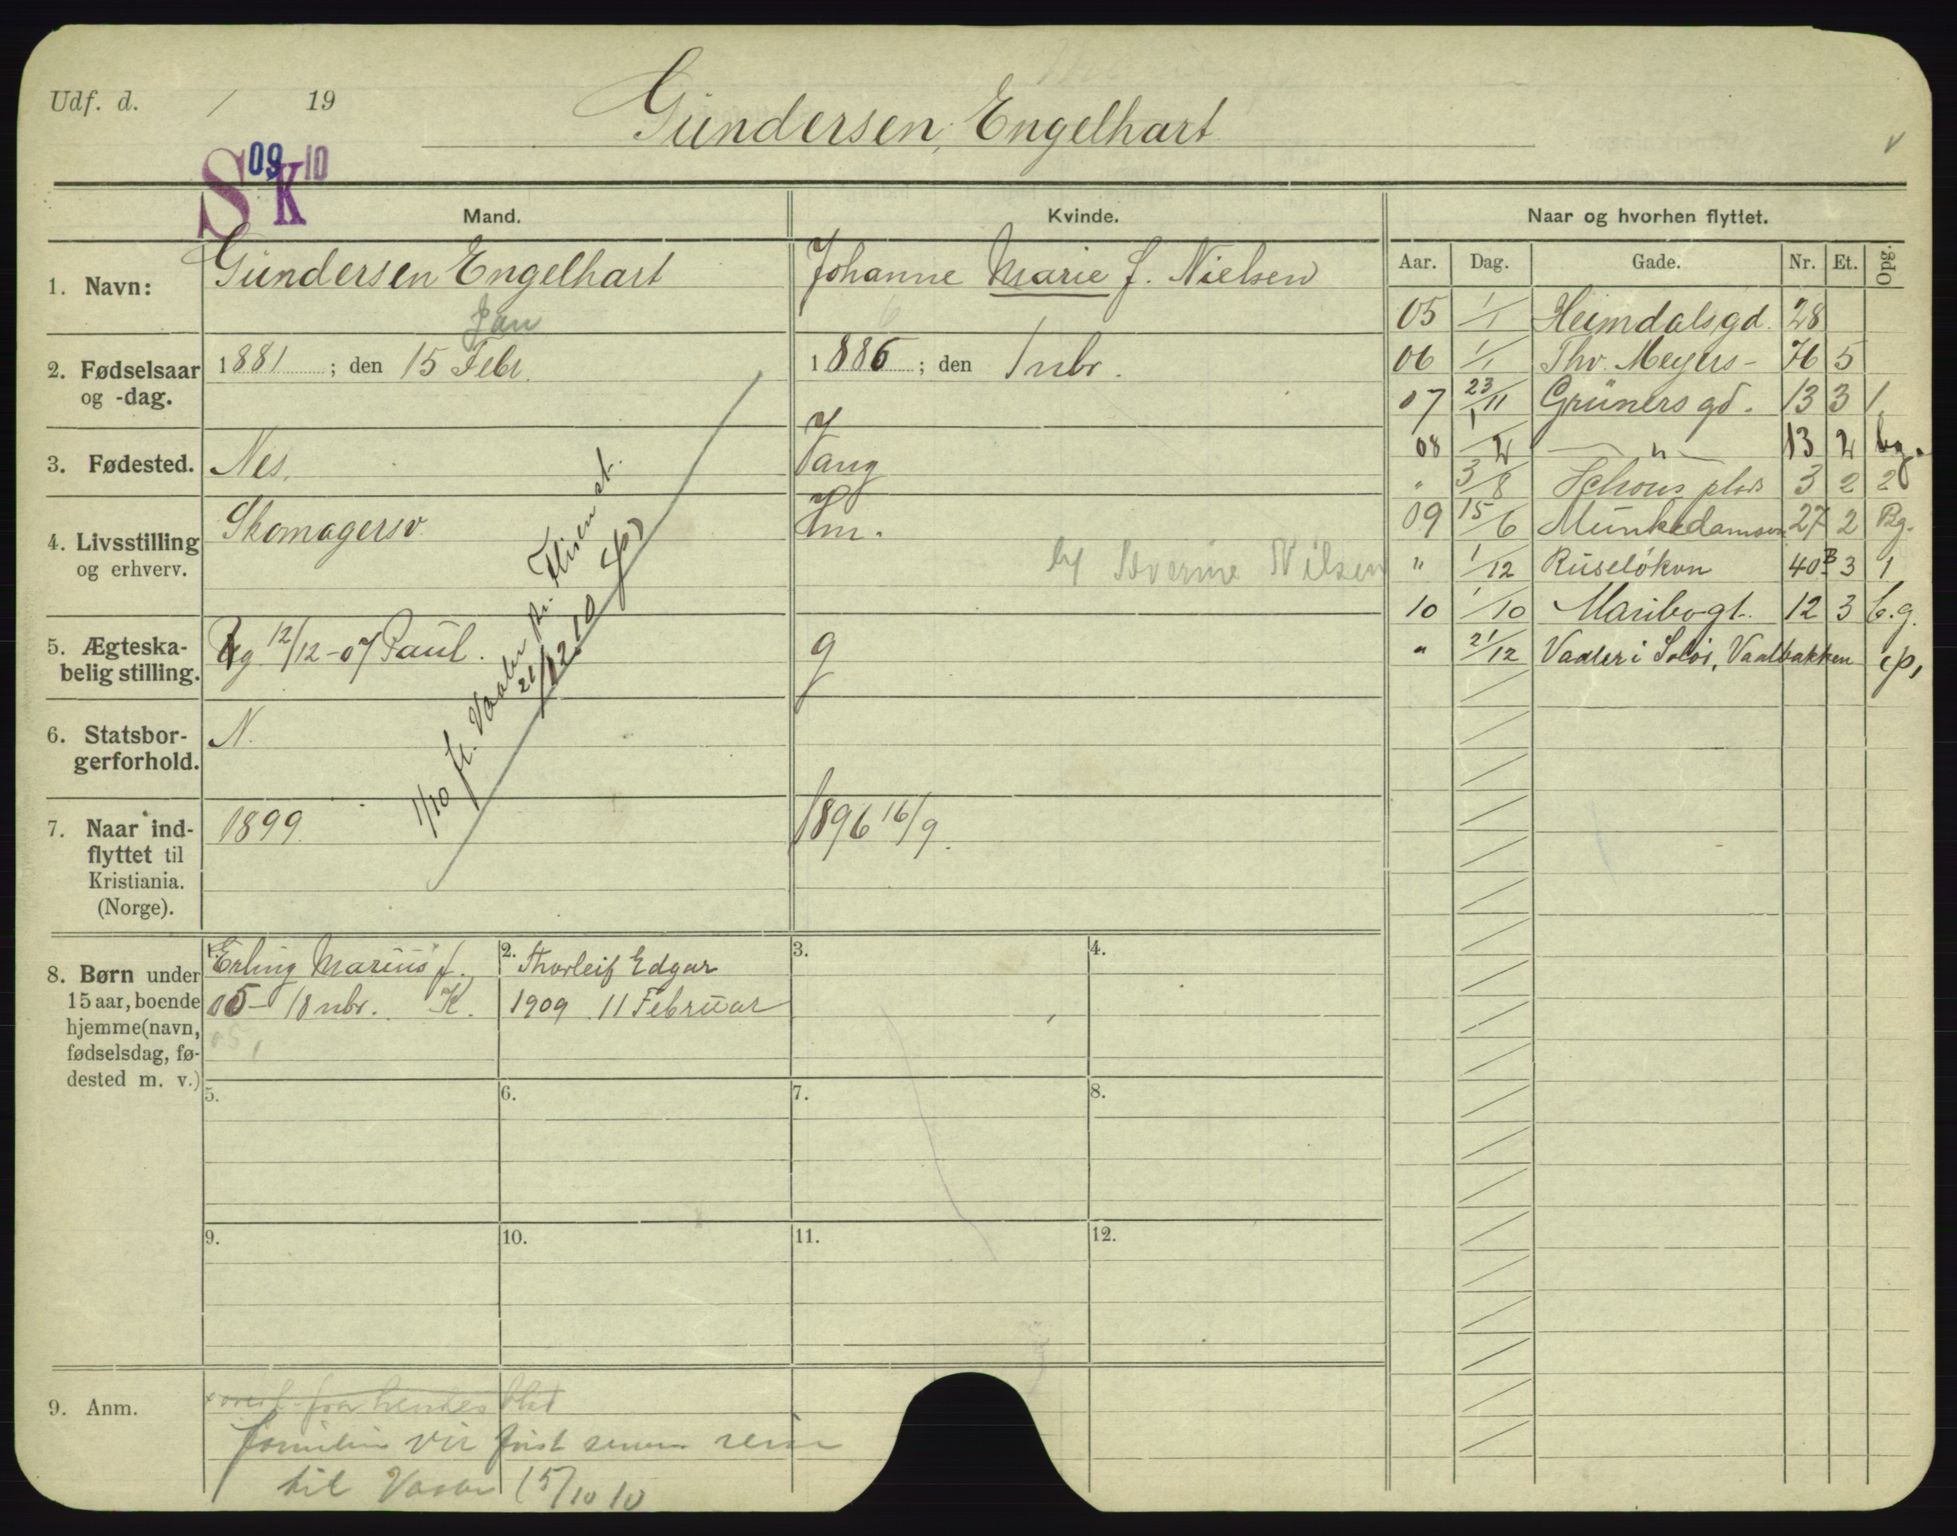 Udf. d. / 19
Gundersen, Engelhart
S 09 K 10
Mand.
Kvinde.
Naar og hvorhen flyttet.
Aar. Dag. Gade. Nr. Et. Opg.
1. Navn:
Gundersen Engelhart
Johanne Marie f. Nielsen
2. Fødselsaar og -dag.
Jan
1881 ; den 15 Febr.
1886 ; den 1 nbr.
3. Fødested.
Nes.
Vang
4. Livsstilling og erhverv.
Skomagersv.
Hm.
Severine Nilsen
5. Ægteska-
belig stilling.
g 12/12-07 Paul.
g
6. Statsbor-
gerforhold.
N.
7. Naar ind-
flyttet til
Kristiania.
(Norge).
1899.
1896 16/9.
1/10 fl. Vaaler pr. Flisen st.
21/12.10
05 1/1 Heimdalsgd. 28
06 1/1 Thv. Meyers- 76 5
07 23/11 Grünersgd. 13 3 1
08 1/2 — " — 13 2 bg.
" 3/8 Schous plads 3 2 2
09 15/6 Munkedamsvn 27 2 Bg.
" 1/12 Ruseløkvn 40B 3 1
10 1/10 Maribogt. 12 3 b.g.
" 21/12 Vaaler i Solør, Vaalbakken
8. Børn under
15 aar, boende
hjemme (navn,
fødselsdag, fø-
dested m. v.)
1. Erling Marius f.
05- 18 nbr. K.
05,
2. Thorleif Edgar
1909 11 Februar
3.
4.
5.
6.
7.
8.
9.
10.
11.
12.
9. Anm.
fra hendes blad
familien vil først senere reise
til Vaaler 15/10 10